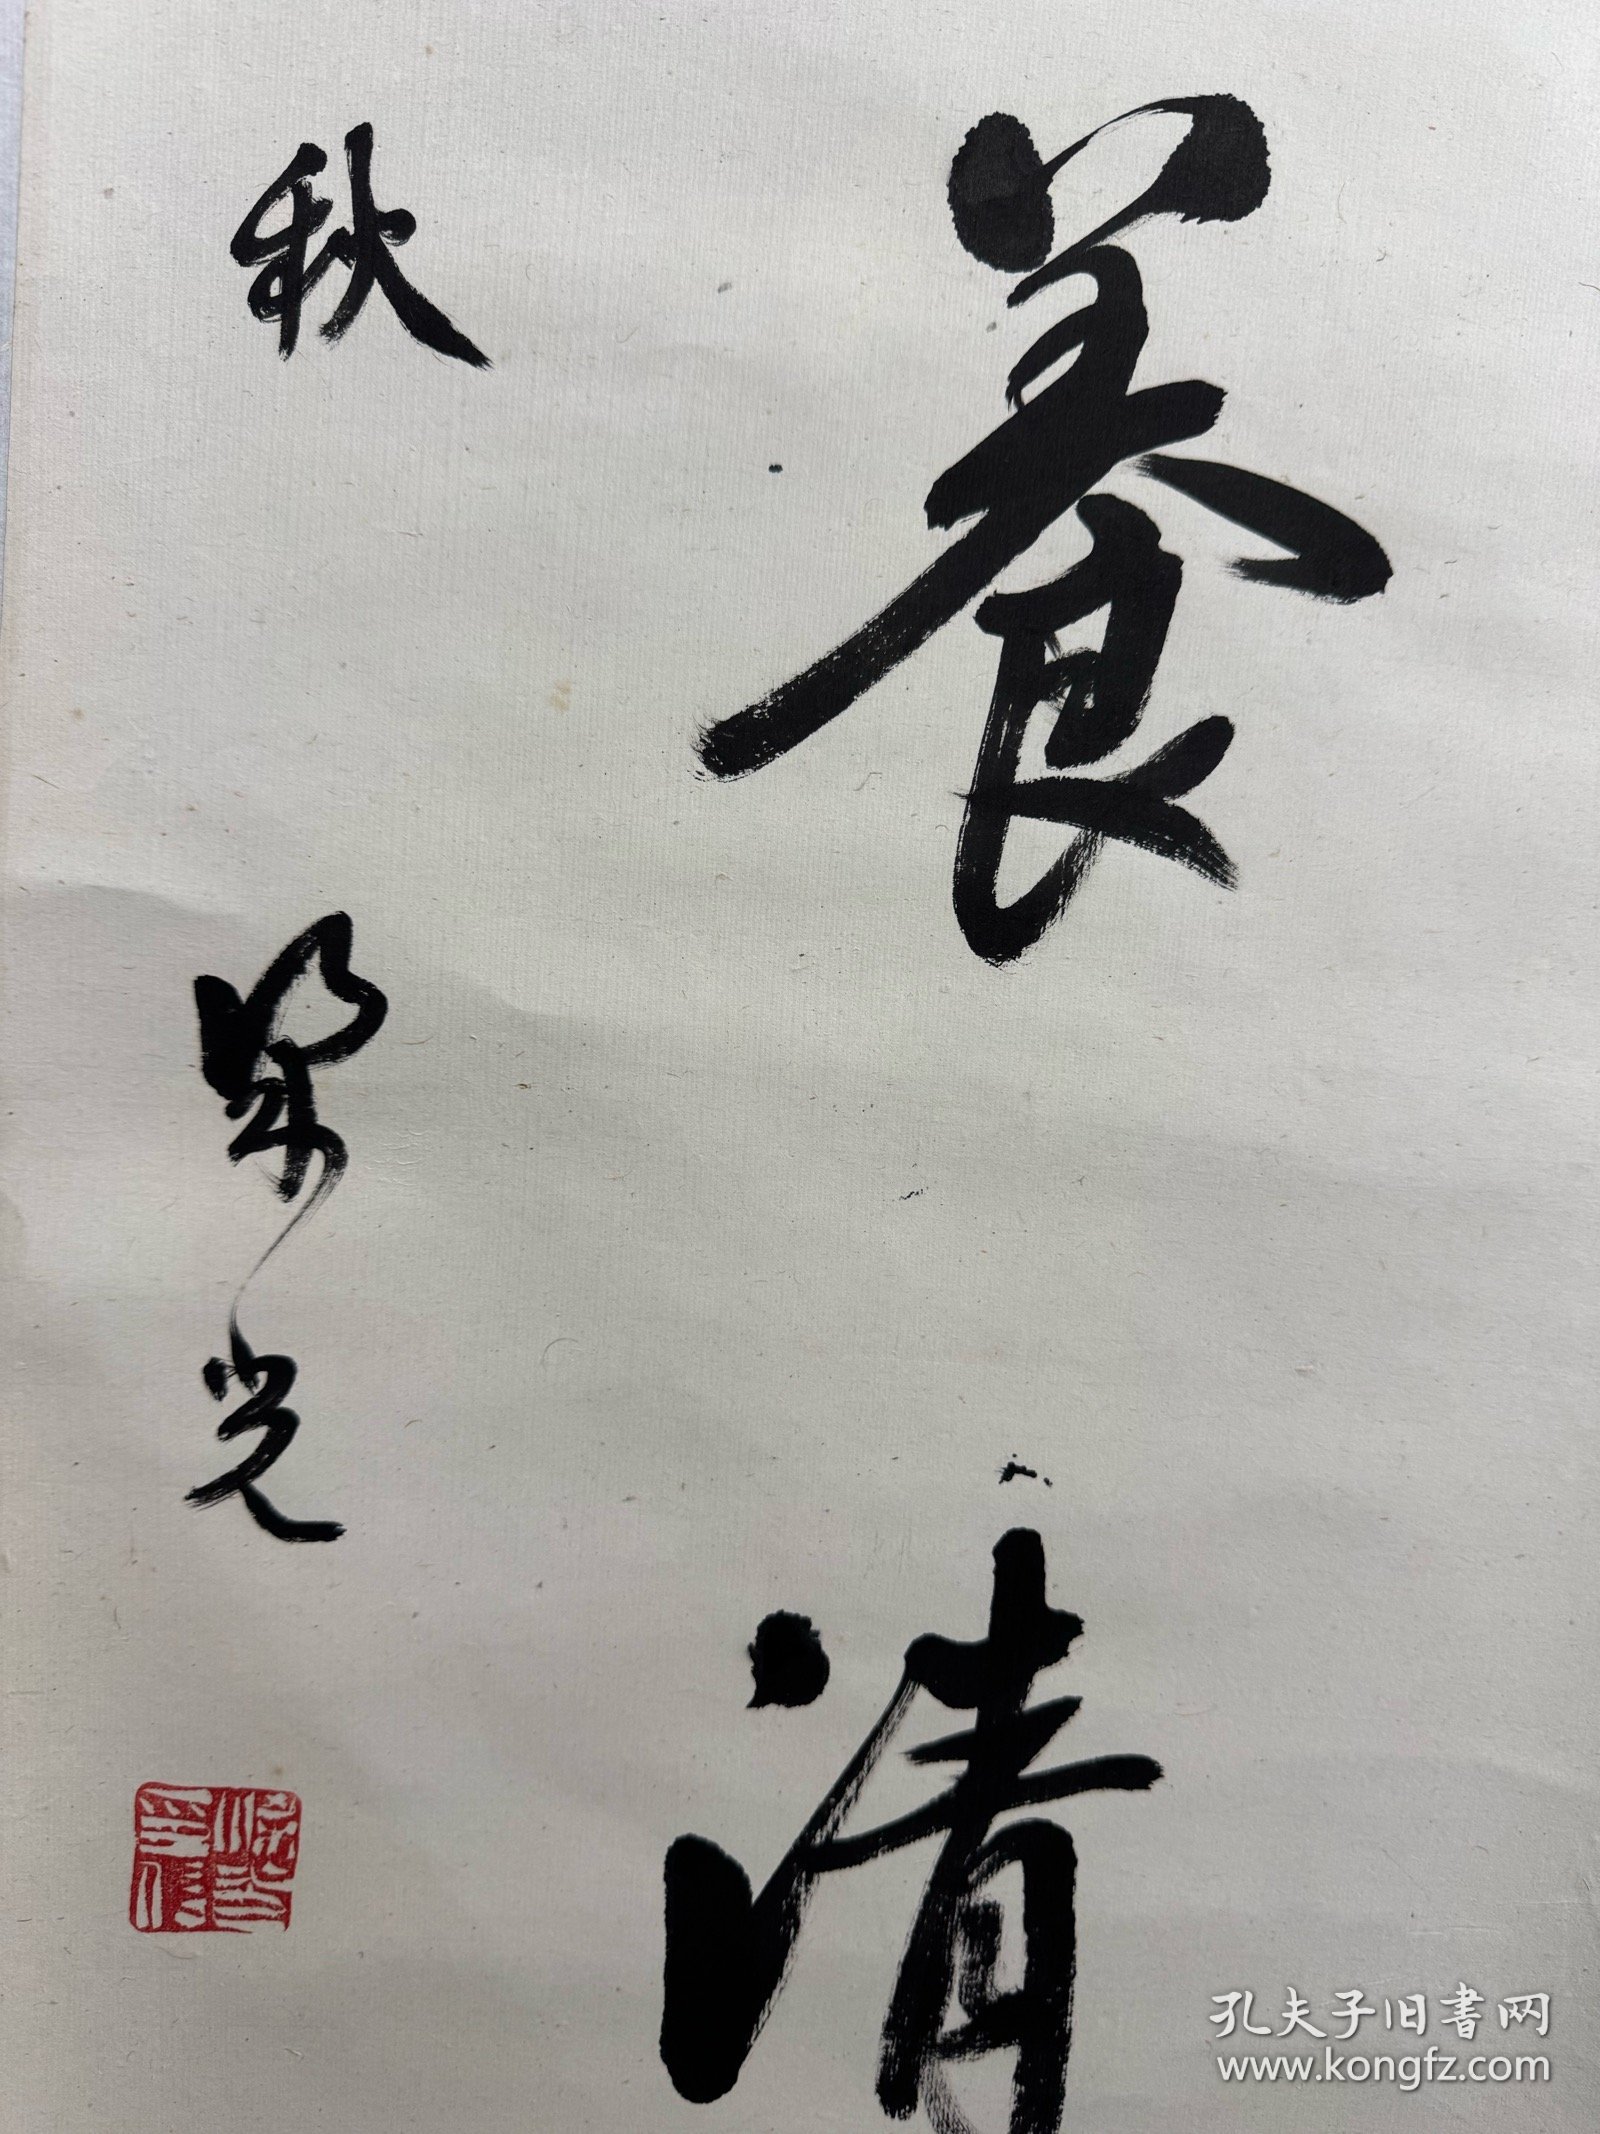 養清
秋
梁光
孔夫子旧書网
www.kongfz.com